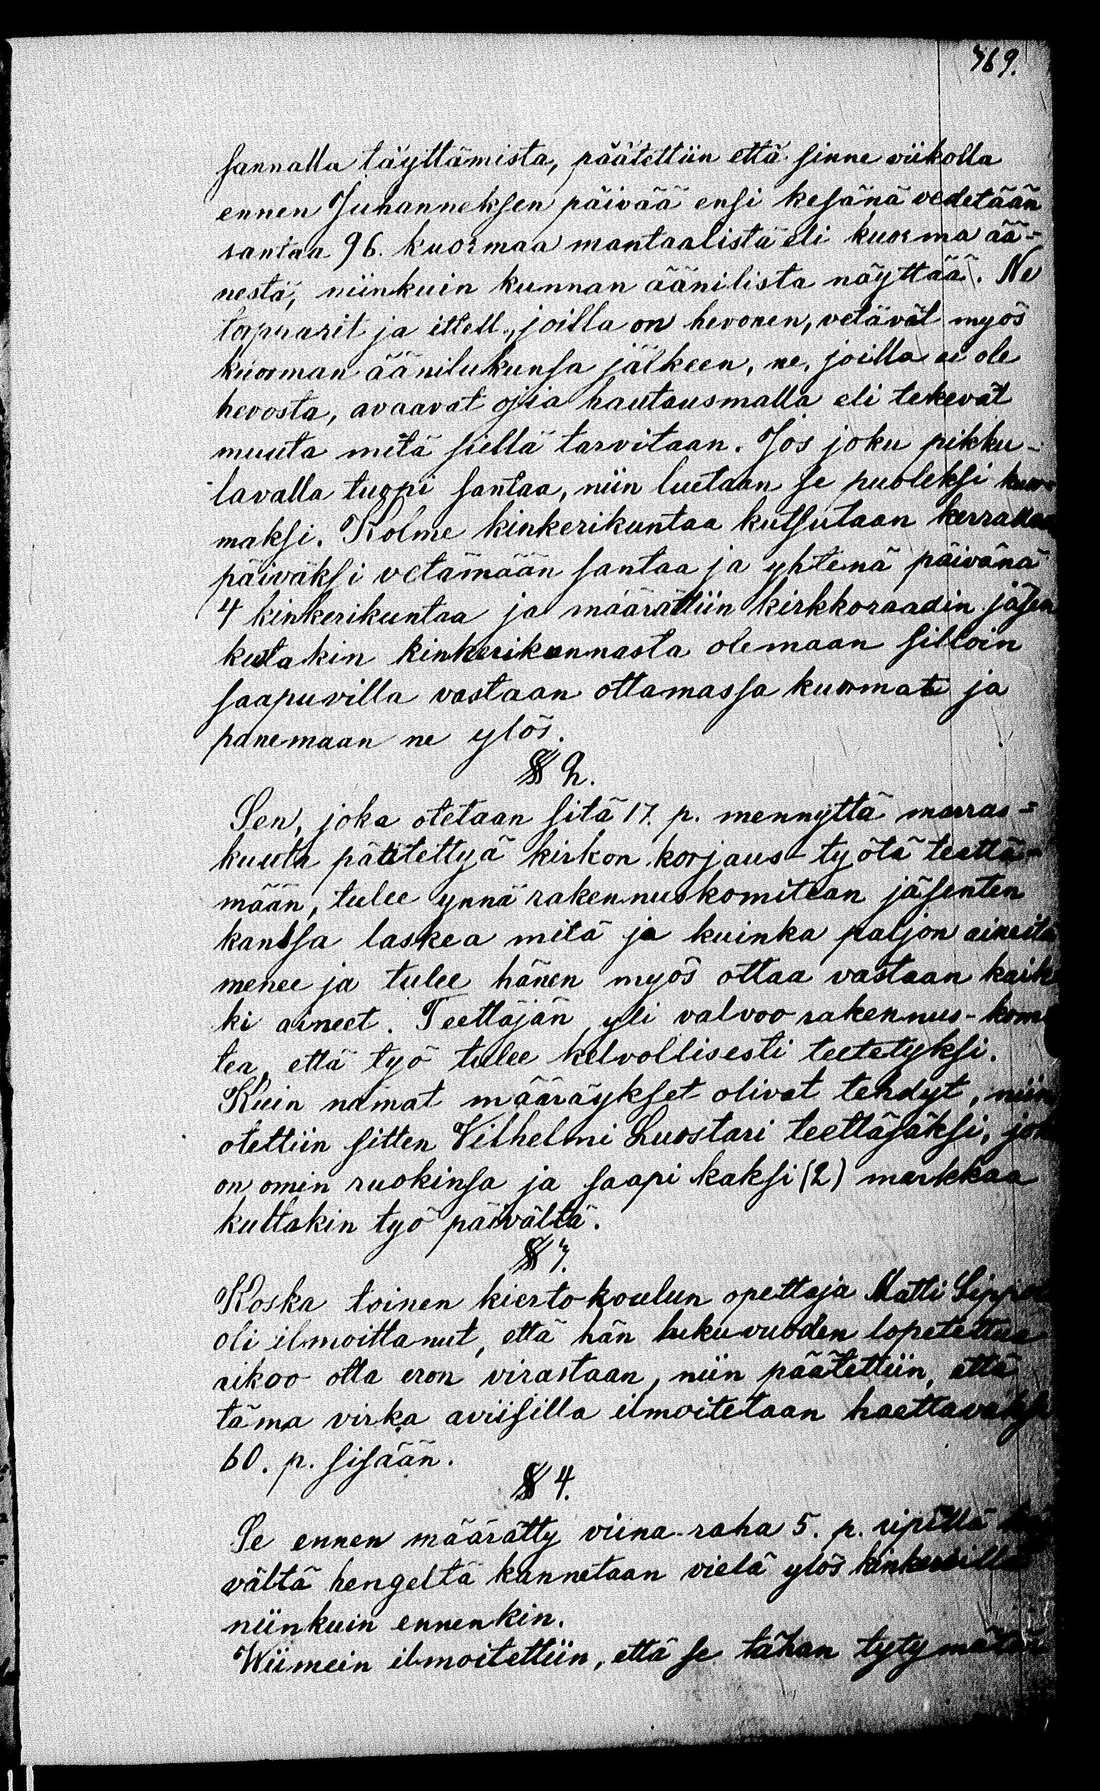 769.
sannalla täyttämistä, päätettiin että sinne viikolla
ennen Juhanneksen päivää ensi kesänä vedetään
santaa 96. kuormaa mantaalista eli kuorma ää-
nestä, niinkuin kunnan äänilista näyttää. Ne
torpparit ja ittell., joilla on hevonen, vetävät myös
kuorman äänilukunsa jälkeen, ne, joilla ei ole
hevosta, avaavat ojia hautausmalla eli tekevät
muuta mitä siellä tarvitaan. Jos joku pikku-
lavalla tuopi santaa, niin luetaan se puoleksi kuor-
maksi. Kolme kinkerikuntaa kutsutaan kerrallaan
päiväksi vetämään santaa ja yhtenä päivänä
4 kinkerikuntaa ja määrättiin kirkkoraadin jäsen
kustakin kinkerikunnasta olemaan silloin
saapuvilla vastaan ottamassa kuormat ja
panemaan ne ylös.
§ 2.
Sen, joka otetaan sitä 17. p. mennyttä marras-
kuuta päätettyä kirkon korjaus-työtä teettä-
mään, tulee ynnä rakennuskomitean jäsenten
kanssa laskea mitä ja kuinka paljon aineita
menee ja tulee hänen myös ottaa vastaan kaik
ki aineet. Teettäjän yli valvoo rakennus-komi
tea, että työ tulee kelvollisesti teetetyksi.
Kuin nämät määräykset olivat tehdyt, niin
otettiin sitten Vilhelmi Luostari teettäjäksi, joka
on omin ruokinsa ja saapi kaksi (2) markkaa
kultakin työ päivältä.
§ 3.
Koska toinen kiertokoulun opettaja Matti
oli ilmoittanut, että hän lukuvuoden lopetettua
aikoo otta eron virastaan, niin päätettiin, että
tämä virka aviisilla ilmoitetaan haettavaksi
60. p. sisään.
§ 4.
Se ennen määrätty viina-raha 5. p. ripillä
vältä hengeltä kannetaan vielä ylös kinkereillä
niinkuin ennenkin.
Wiimein ilmoitettiin, että se tähan tytymätön